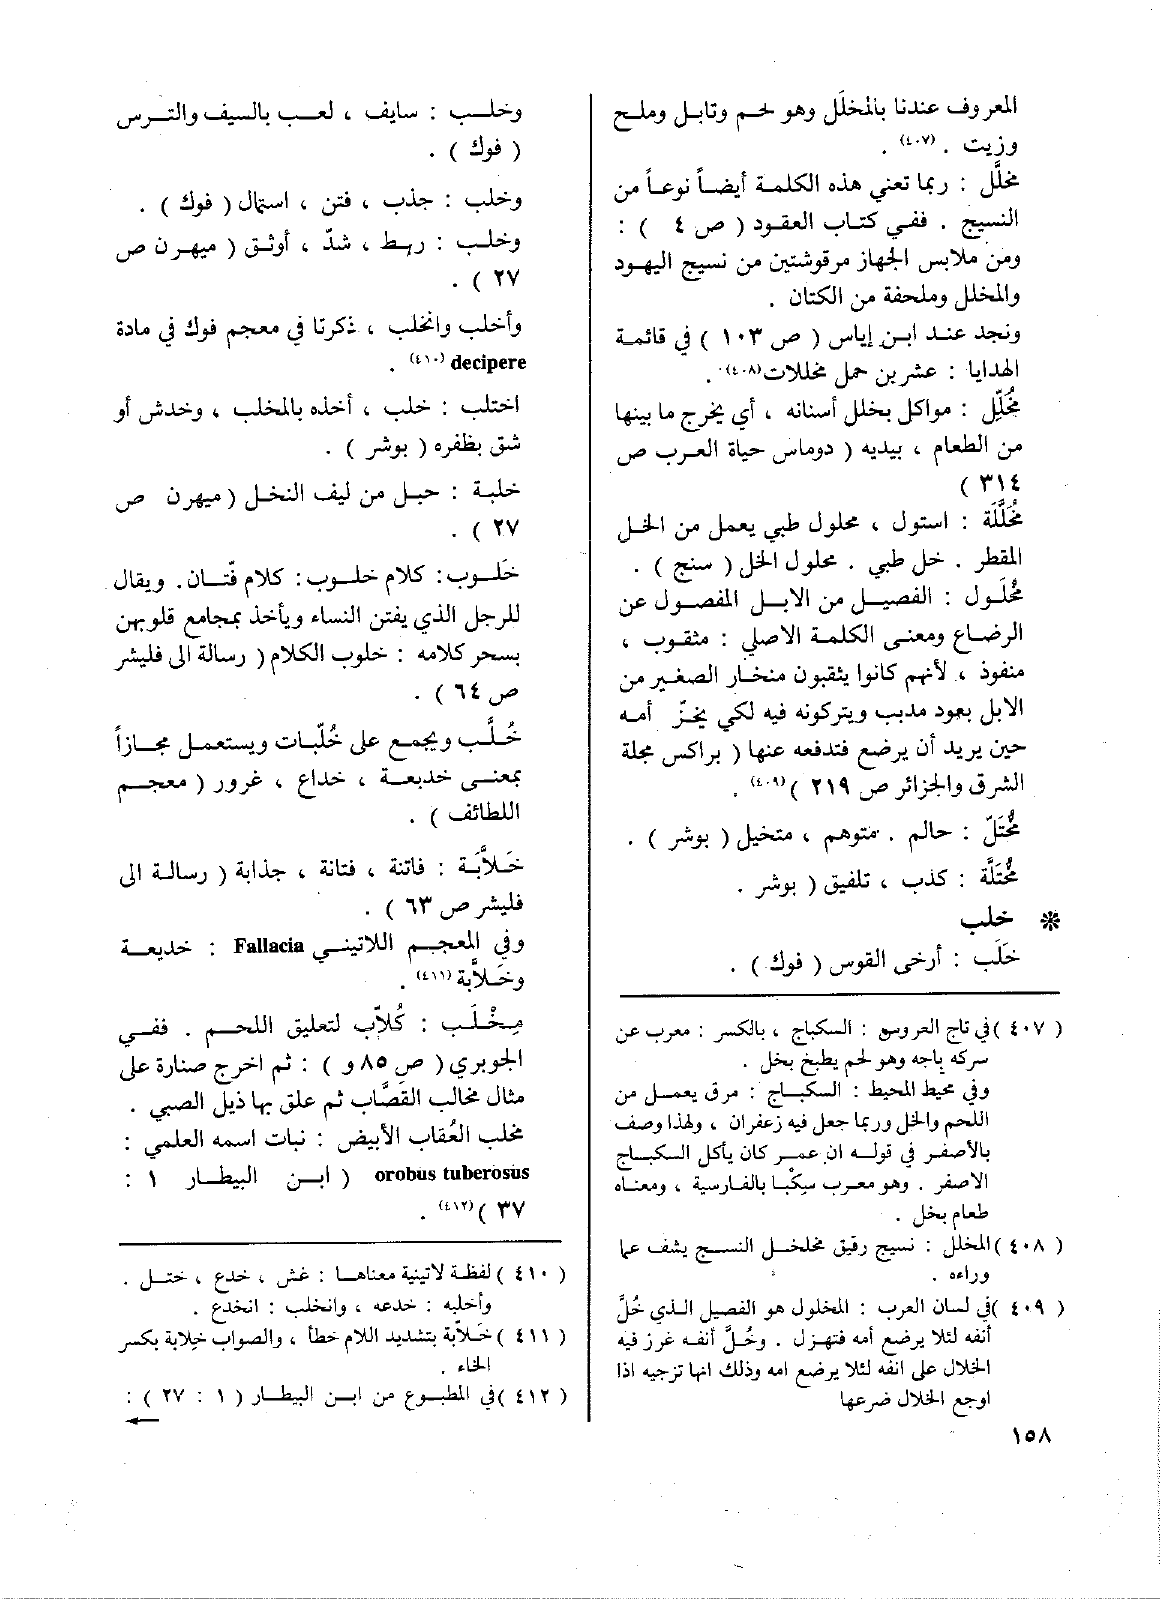 المعروف عندنا بالمخلَل وهو لحم وتابل وملح
وزيت . (٤٠٧) .
مخلَّل : ربما تعني هذه الكلمة أيضاً نوعاً من
النسيج . ففي كتاب العقود ( ص ٤ ) :
ومن ملابس الجهاز مرقوشتين من نسيج اليهود
والمخلل وملحفة من الكتان .
ونجد عند ابن إياس ( ص ١٠٣ ) في قائمة
الهدايا : عشرين حمل مخللات(٤٠٨) .
مُخَلِّل : مواكل يخلل أسنانه ، أي يخرج ما بينها
من الطعام ، بيديه ( دوماس حياة العرب ص
٣١٤ )
مُخَلَّلَة : استول ، محلول طبي يعمل من الخل
المقطر . خل طبي . محلول الخل ( سنج ) .
مُخْلَول : الفصيل من الابل المفصول عن
الرضاع ومعنى الكلمة الاصلي : مثقوب ،
منفوذ ، لأنهم كانوا يثقبون منخار الصغير من
الابل بعود مدبب ويتركونه فيه لكي يخزّ أمه
حين يريد أن يرضع فتدفعه عنها ( براكس مجلة
الشرق والجزائر ص ٢١٩ )(٤٠٩) .
مُخْتَلّ : حالم . متوهم ، متخيل ( بوشر ) .
مُخْتَلَّة : كذب ، تلفيق ( بوشر .
❊ خلب
خَلَب : أرخى القوس ( فوك ) .
( ٤٠٧ )في تاج العروس : السكباج ، بالكسر : معرب عن
سركه باجه وهو لحم يطبخ بخل .
وفي محيط المحيط : السكباج : مرق يعمل من
اللحم والخل وربما جعل فيه زعفران ، ولهذا وصف
بالأصفر في قوله ان عمر كان يأكل السكباج
الاصفر . وهو معرب سِكْبا بالفارسية ، ومعناه
طعام بخل .
( ٤٠٨ )المخلل : نسيج رقيق مخلخل النسج يشف عما
وراءه .
( ٤٠٩ )في لسان العرب : المخلول هو الفصيل الذي خُلَّ
أنفه لئلا يرضع أمه فتهزل . وخُلَّ أنفه غرز فيه
الخلال على انفه لئلا يرضع امه وذلك انها تزجيه اذا
اوجع الخلال ضرعها
وخلب : سايف ، لعب بالسيف والترس
( فوك ) .
وخلب : جذب ، فتن ، استمال ( فوك ) .
وخلب : ربط ، شدّ ، أوثق ( ميهرن ص
٢٧ ) .
وأخلب وانخلب ، ذكرتا في معجم فوك في مادة
decipere (٤١٠) .
اختلب : خلب ، أخذه بالمخلب ، وخدش أو
شق بظفره ( بوشر ) .
خلبة : حبل من ليف النخل ( ميهرن ص
٢٧ ) .
خَلوب : كلام خلوب : كلام فتّان . ويقال
للرجل الذي يفتن النساء ويأخذ بمجامع قلوبهن
بسحر كلامه : خلوب الكلام ( رسالة الى فليشر
ص ٦٤ ) .
خُلَّب ويجمع على خُلّبات ويستعمل مجازاً
بمعنى خديعة ، خداع ، غرور ( معجم
اللطائف ) .
خَلاَّبَة : فاتنة ، فتانة ، جذابة ( رسالة الى
فليشر ص ٦٣ ) .
وفي المعجم اللاتيني Fallacia : خديعة
وخَلاَّبة (٤١١) .
مِخْلَب : كُلاّب لتعليق اللحم . ففي
الجوبري ( ص ٨٥ و ) : ثم اخرج صنارة على
مثال مخالب القَصَّاب ثم علق بها ذيل الصبي .
مخلب العُقاب الأبيض : نبات اسمه العلمي :
orobus tuberosus ( ابن البيطار ١ :
٣٧ )(٤١٢) .
( ٤١٠ )لفظة لاتينية معناها : غش ، خدع ، ختل .
وأخلبه : خدعه ، وانخلب : انخدع .
( ٤١١ )خَلاّبة بتشديد اللام خطأ ، والصواب خِلابة بكسر
الخاء .
( ٤١٢ )في المطبوع من ابن البيطار ( ١ : ٢٧ ) :
١٥٨